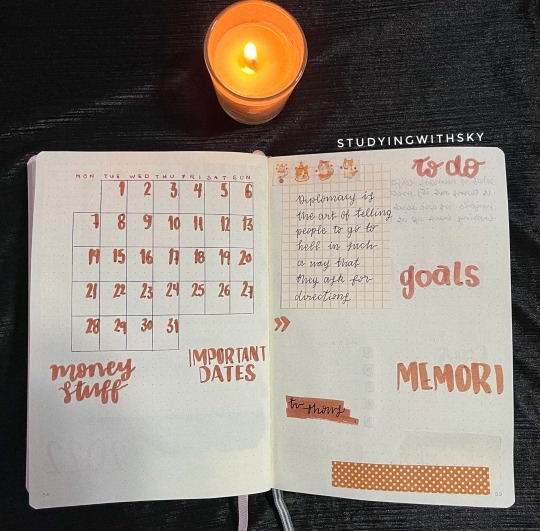 STUDYINGWITHSKY
MON TUE WED THU FRI SAT SUN
1 2 3 4 5 6
7 8 9 10 11 12 13
14 15 16 17 18 19 20
21 22 23 24 25 26 27
28 29 30 31
money
stuff
IMPORTANT
DATES
Diplomacy is
the art of telling
people to go to
hell in such
a way that
they ask for
directions
to do
goals
MEMORI
tv shows